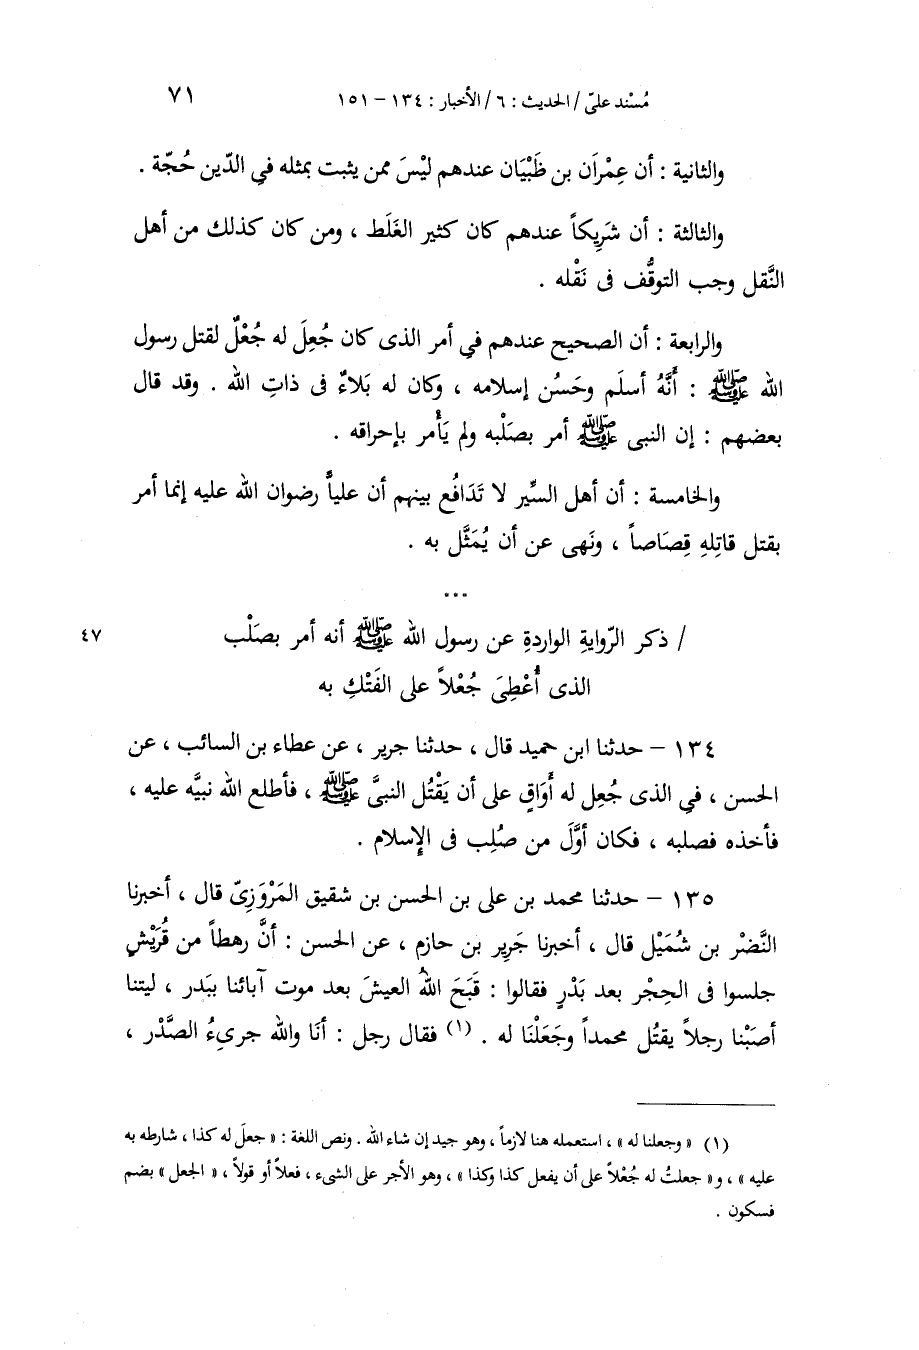 مُسْند علىّ / الحديث : ٦ / الأخبار : ١٣٤ – ١٥١ ٧١
والثانية : أن عِمْرَان بن ظَبْيَان عندهم ليْسَ ممن يثبت بمثله فىِ الدّين حُجّة .
والثالثة : أن شَرِيكاً عندهم كان كثير الغَلَط ، ومن كان كذلك من أهل
النَّقل وجب التوقُّف فى نَقْله .
والرابعة : أن الصحيح عندهم فىِ أمر الذى كان جُعِلَ له جُعْلٌ لقتل رسول
الله ﷺ : أَنَّهُ أسلَم وحَسُن إسلامه ، وكان له بَلاءٌ فى ذاتِ الله . وقد قال
بعضهم : إن النبى ﷺ أمر بصَلْبه ولم يَأْمر بإحراقه .
والخامسة : أن أهل السِّير لا تَدَافُع بينهم أن علياًّ رضوان الله عليه إنما أمر
بقتل قاتِلهِ قِصَاصاً ، ونَهى عن أن يُمَثَّل به .
...
/ ذكر الرّوايةِ الواردةِ عن رسول الله ﷺ أنه أمر بصَلْب ٤٧
الذى أُعْطِىَ جُعْلاً على الفَتْكِ به
١٣٤ – حدثنا ابن حميد قال ، حدثنا جرير ، عن عطاء بن السائب ، عن
الحسن ، فىِ الذى جُعِل له أَوَاقٍ على أن يَقْتُل النبىَّ ﷺ ، فأطلع الله نبيَّه عليه ،
فأخذه فصلبه ، فكان أوَّلَ من صُلِب فى الإسلام .
١٣٥ – حدثنا محمد بن على بن الحسن بن شقيق المَرْوَزِىّ قال ، أخبرنا
النَّضْر بن شُمَيْل قال ، أخبرنا جَرِير بن حازم ، عن الحسن : أنَّ رهطاً من قُرَيْشٍ
جلسوا فى الحِجْر بعد بَدْرٍ فقالوا : قَبَحَ اللهُ العيشَ بعد موت آبائنا ببَدر ، ليتنا
أصَبْنا رجلاً يقتُل محمداً وجَعَلْنَا له . (١) فقال رجل : أنَا والله جرىءُ الصَّدْر ،
(١) « وجعلنا له » ، استعمله هنا لازماً ، وهو جيد إن شاء الله . ونص اللغة : « جعلَ له كذا ، شارطه به
عليه » ، و« جعلتُ له جُعْلاً على أن يفعل كذا وكذا » ، وهو الأجر على الشىء ، فعلاً أو قولاً ، « الجعل » بضم
فسكون .